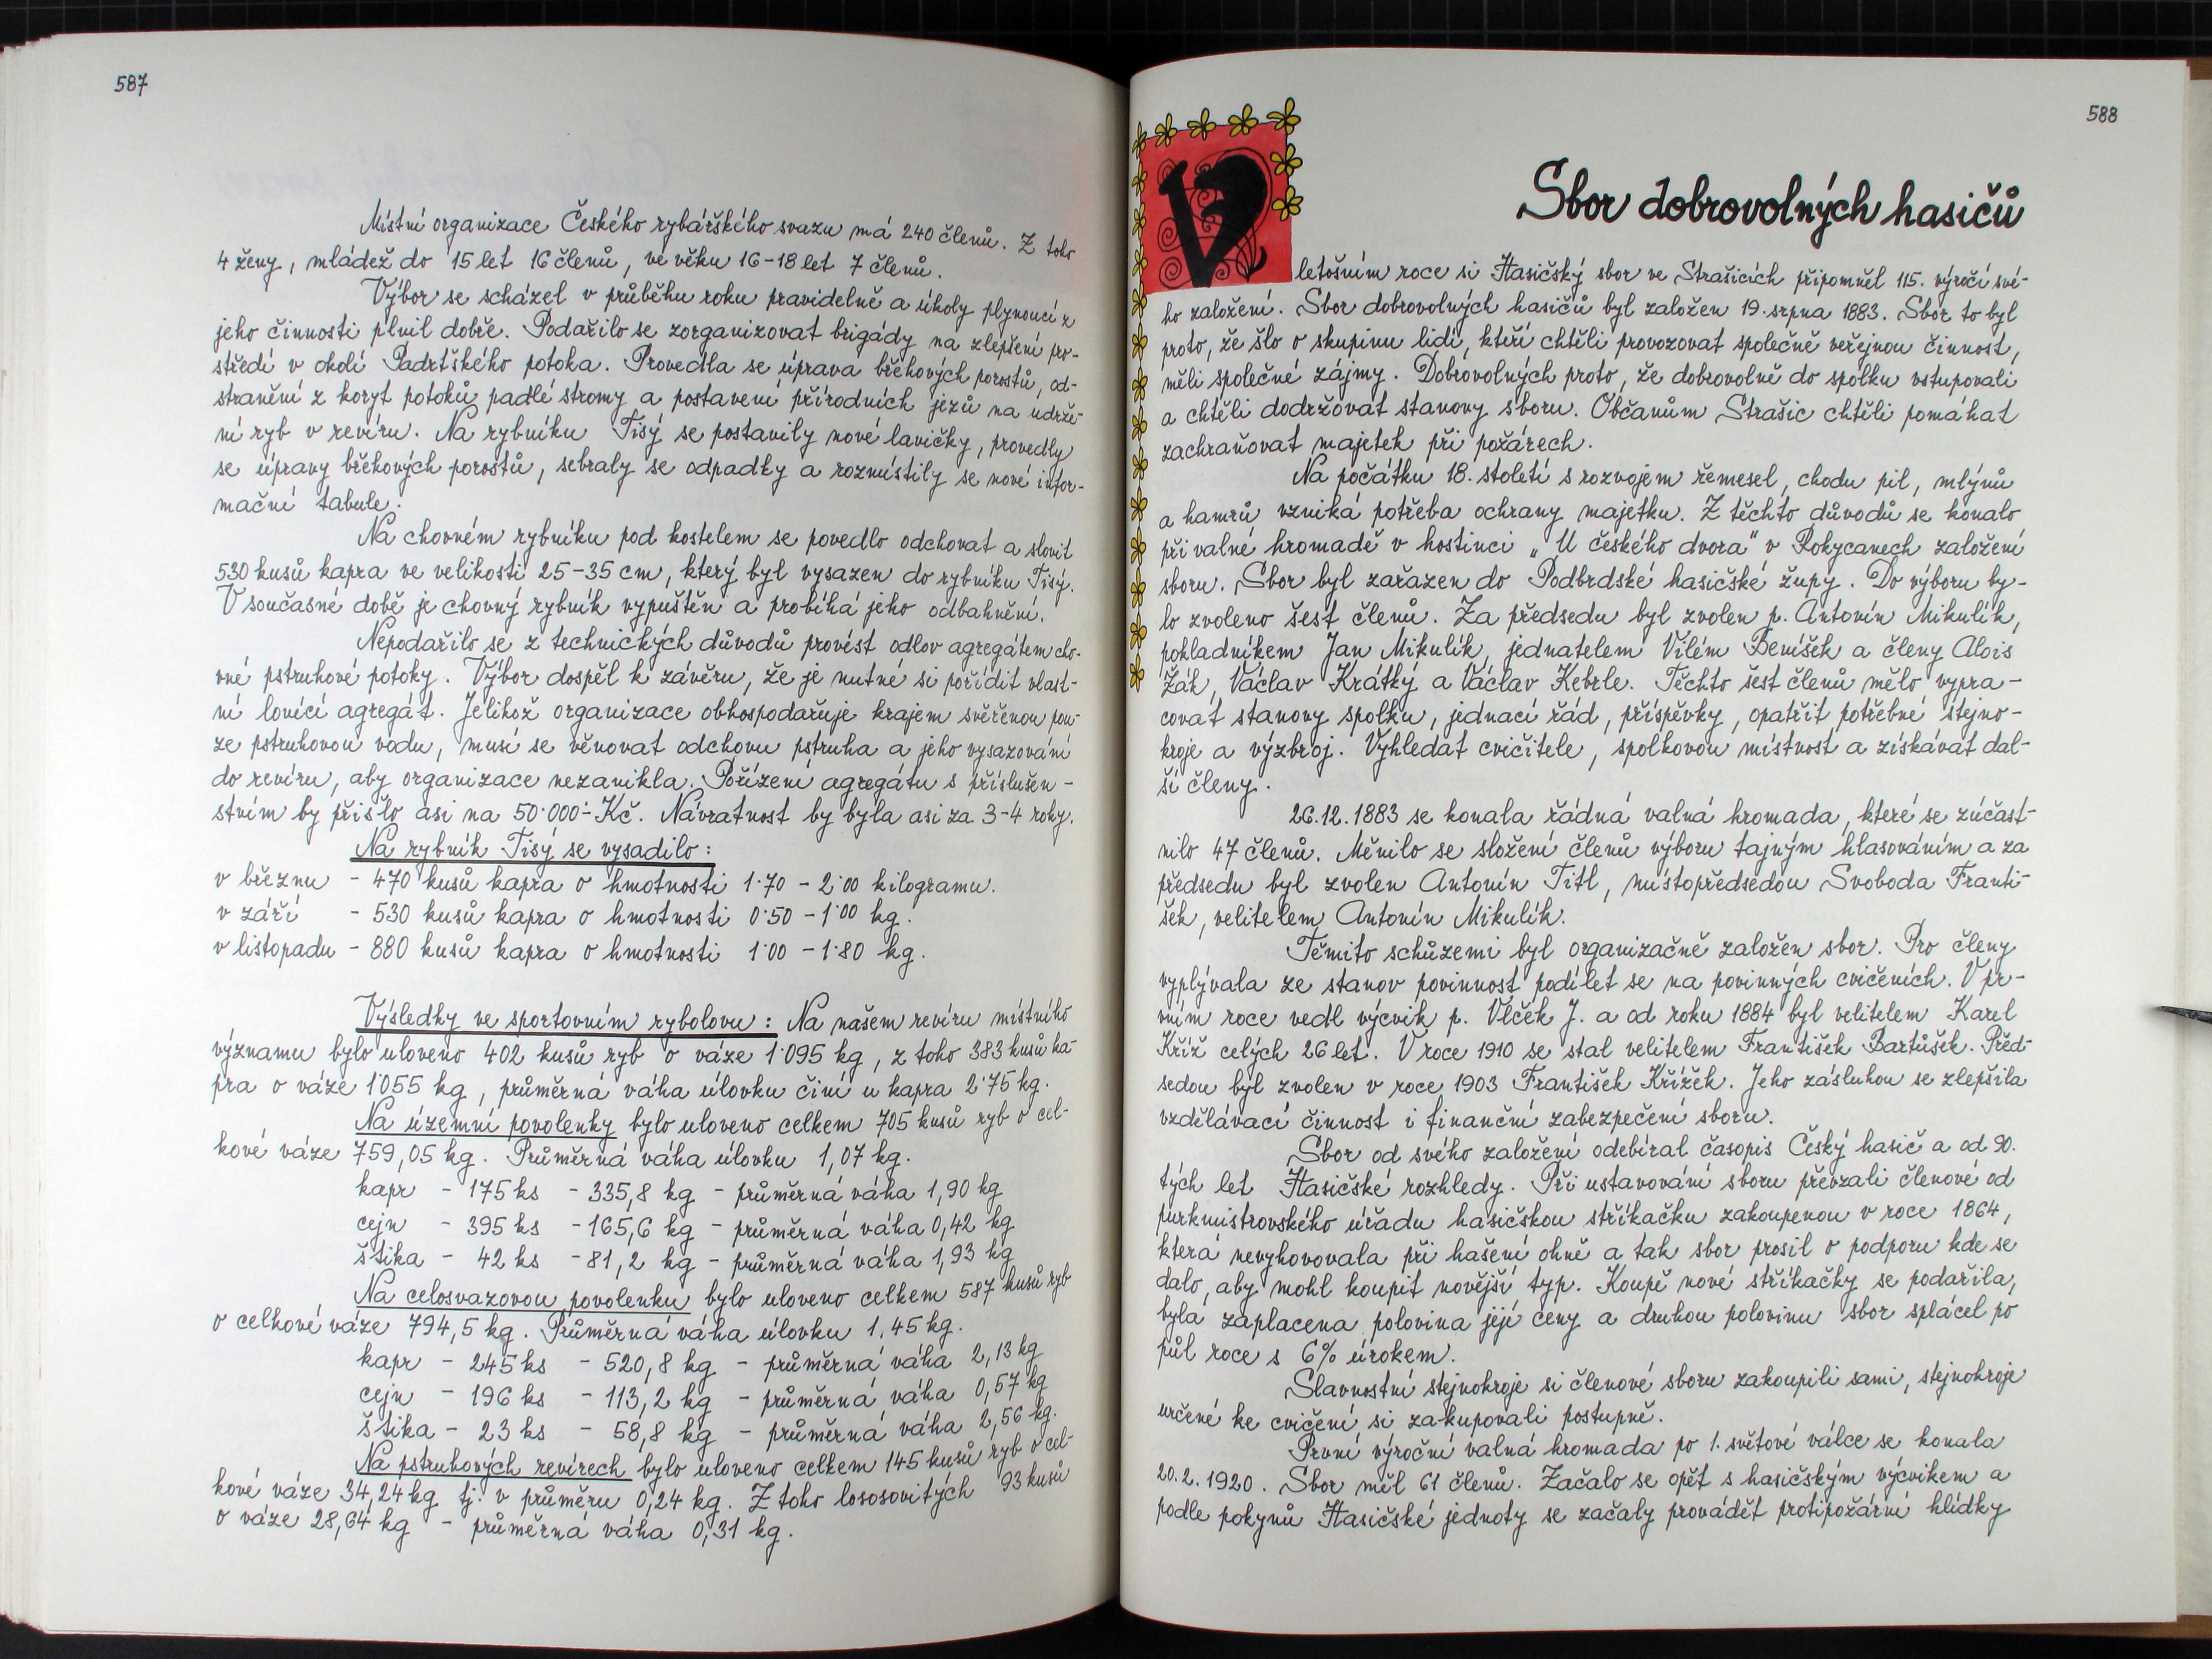 587
Místní organizace Českého rybářského svazu má 240 členů. Z toho
4 ženy, mládež do 15 let 16 členů, ve věku 16-18 let 7 členů.
Výbor se scházel v průběhu roku pravidelně a úkoly plynoucí z
jeho činnosti plnil dobře. Podařilo se zorganizovat brigády na zlepšení pro-
středí v okolí Padrtského potoka. Provedla se úprava břehových porostů, od-
stranění z koryt potoků padlé stromy a postavení přírodních jezů na udrže-
ní ryb v revíru. Na rybníku Tisý se postavily nové lavičky, provedly
se úpravy břehových porostů, sebraly se odpadky a rozmístily se nové infor-
mační tabule.
Na chovném rybníku pod kostelem se povedlo odchovat a slovit
530 kusů kapra ve velikosti 25-35 cm, který byl vysazen do rybníku Tisý.
V současné době je chovný rybník vypuštěn a probíhá jeho odbahnění.
Nepodařilo se z technických důvodů provést odlov agregátem cho-
vné pstruhové potoky. Výbor dospěl k závěru, že je nutné si pořídit vlast-
ní lovící agregát. Jelikož organizace obhospodařuje krajem svěřenou pou-
ze pstruhovou vodu, musí se věnovat odchovu pstruha a jeho vysazování
do revíru, aby organizace nezanikla. Pořízení agregátu s příslušen-
stvím by přišlo asi na 50·000·- Kč. Návratnost by byla asi za 3-4 roky.
Na rybník Tisý se vysadilo:
v březnu - 470 kusů kapra o hmotnosti 1·70 - 2·00 kilogramu.
v září - 530 kusů kapra o hmotnosti 0·50 - 1·00 kg.
v listopadu - 880 kusů kapra o hmotnosti 1·00 - 1·80 kg.
Výsledky ve sportovním rybolovu: Na našem revíru místního
významu bylo uloveno 402 kusů ryb o váze 1·095 kg, z toho 383 kusů ka-
pra o váze 1·055 kg, průměrná váha úlovku činí u kapra 2·75 kg.
Na územní povolenky bylo uloveno celkem 705 kusů ryb o cel-
kové váze 759,05 kg. Průměrná váha úlovku 1,07 kg.
kapr - 175 ks - 335,8 kg - průměrná váha 1,90 kg
cejn - 395 ks - 165,6 kg - průměrná váha 0,42 kg
štika - 42 ks - 81,2 kg - průměrná váha 1,93 kg
Na celosvazovou povolenku bylo uloveno celkem 587 kusů ryb
o celkové váze 794,5 kg. Průměrná váha úlovku 1,45 kg.
kapr - 245 ks - 520,8 kg - průměrná váha 2,13 kg
cejn - 196 ks - 113,2 kg - průměrná váha 0,57 kg
štika - 23 ks - 58,8 kg - průměrná váha 2,56 kg.
Na pstruhových revírech bylo uloveno celkem 145 kusů ryb o cel-
kové váze 34,24 kg tj. v průměru 0,24 kg. Z toho lososovitých 93 kusů
o váze 28,64 kg - průměrná váha 0,31 kg.
588
Sbor dobrovolných hasičů
V letošním roce si Hasičský sbor ve Strašicích připomněl 115. výročí své-
ho založení. Sbor dobrovolných hasičů byl založen 19. srpna 1883. Sbor to byl
proto, že šlo o skupinu lidí, kteří chtěli provozovat společně veřejnou činnost,
měli společné zájmy. Dobrovolných proto, že dobrovolně do spolku vstupovali
a chtěli dodržovat stanovy sboru. Občanům Strašic chtěli pomáhat
zachraňovat majetek při požárech.
Na počátku 18. století s rozvojem řemesel, chodu pil, mlýnů
a hamrů vzniká potřeba ochrany majetku. Z těchto důvodů se konalo
při valné hromadě v hostinci „U českého dvora" v Rokycanech založení
sboru. Sbor byl zařazen do Podbrdské hasičské župy. Do výboru by-
lo zvoleno šest členů. Za předsedu byl zvolen p. Antonín Mikulík,
pokladníkem Jan Mikulík, jednatelem Vilém Beníšek a členy Alois
Žák, Václav Krátký a Václav Keberle. Těchto šest členů mělo vypra-
covat stanovy spolku, jednací řád, příspěvky, opatřit potřebné stejno-
kroje a výzbroj. Vyhledat cvičitele, spolkovou místnost a získávat dal-
ší členy.
26.12.1883 se konala řádná valná hromada, které se zúčast-
nilo 47 členů. Měnilo se složení členů výboru tajným hlasováním a za
předsedu byl zvolen Antonín Titl, místopředsedou Svoboda Franti-
šek, velitelem Antonín Mikulík.
Těmito schůzemi byl organizačně založen sbor. Pro členy
vyplývala ze stanov povinnost podílet se na povinných cvičeních. V pr-
vním roce vedl výcvik p. Vlček J. a od roku 1884 byl velitelem Karel
Kříž celých 26 let. V roce 1910 se stal velitelem František Bartůšek. Před-
sedou byl zvolen v roce 1903 František Křížek. Jeho zásluhou se zlepšila
vzdělávací činnost i finanční zabezpečení sboru.
Sbor od svého založení odebíral časopis Český hasič a od 90.
tých let Hasičské rozhledy. Při ustavování sboru převzali členové od
purkmistrovského úřadu hasičskou stříkačku zakoupenou v roce 1864,
která nevyhovovala při hašení ohně a tak sbor prosil o podporu kde se
dalo, aby mohl koupit novější typ. Koupě nové stříkačky se podařila,
byla zaplacena polovina její ceny a druhou polovinu sbor splácel po
půl roce s 6% úrokem.
Slavnostní stejnokroje si členové sboru zakoupili sami, stejnokroje
určené ke cvičení si zakupovali postupně.
První výroční valná hromada po 1. světové válce se konala
20.2.1920. Sbor měl 61 členů. Začalo se opět s hasičským výcvikem a
podle pokynů Hasičské jednoty se začaly provádět protipožární hlídky